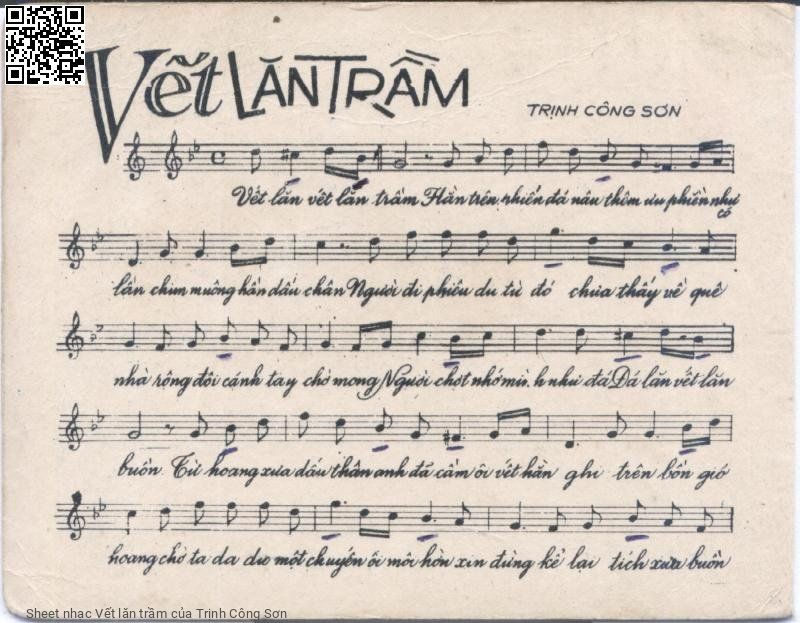 Vết LĂN TRẦM
TRỊNH CÔNG SƠN
Vết lăn vết lăn trầm Hằn trên phiến đá nâu thêm ưu phiền như có
lần chim muông hằn dấu chân Người đi phiêu du từ đó chưa thấy về quê
nhà rộng đôi cánh tay chờ mong Người chợt nhớ mình như đá Đá lăn vết lăn
buồn Từ hoang xưa dấu thân anh đã cầm ôi vết hằn ghi trên bốn gió
hoang chờ ta da dư một chuyến ôi môi hờn xin đừng kể lại tích xưa buồn
Sheet nhạc Vết lăn trầm của Trịnh Công Sơn